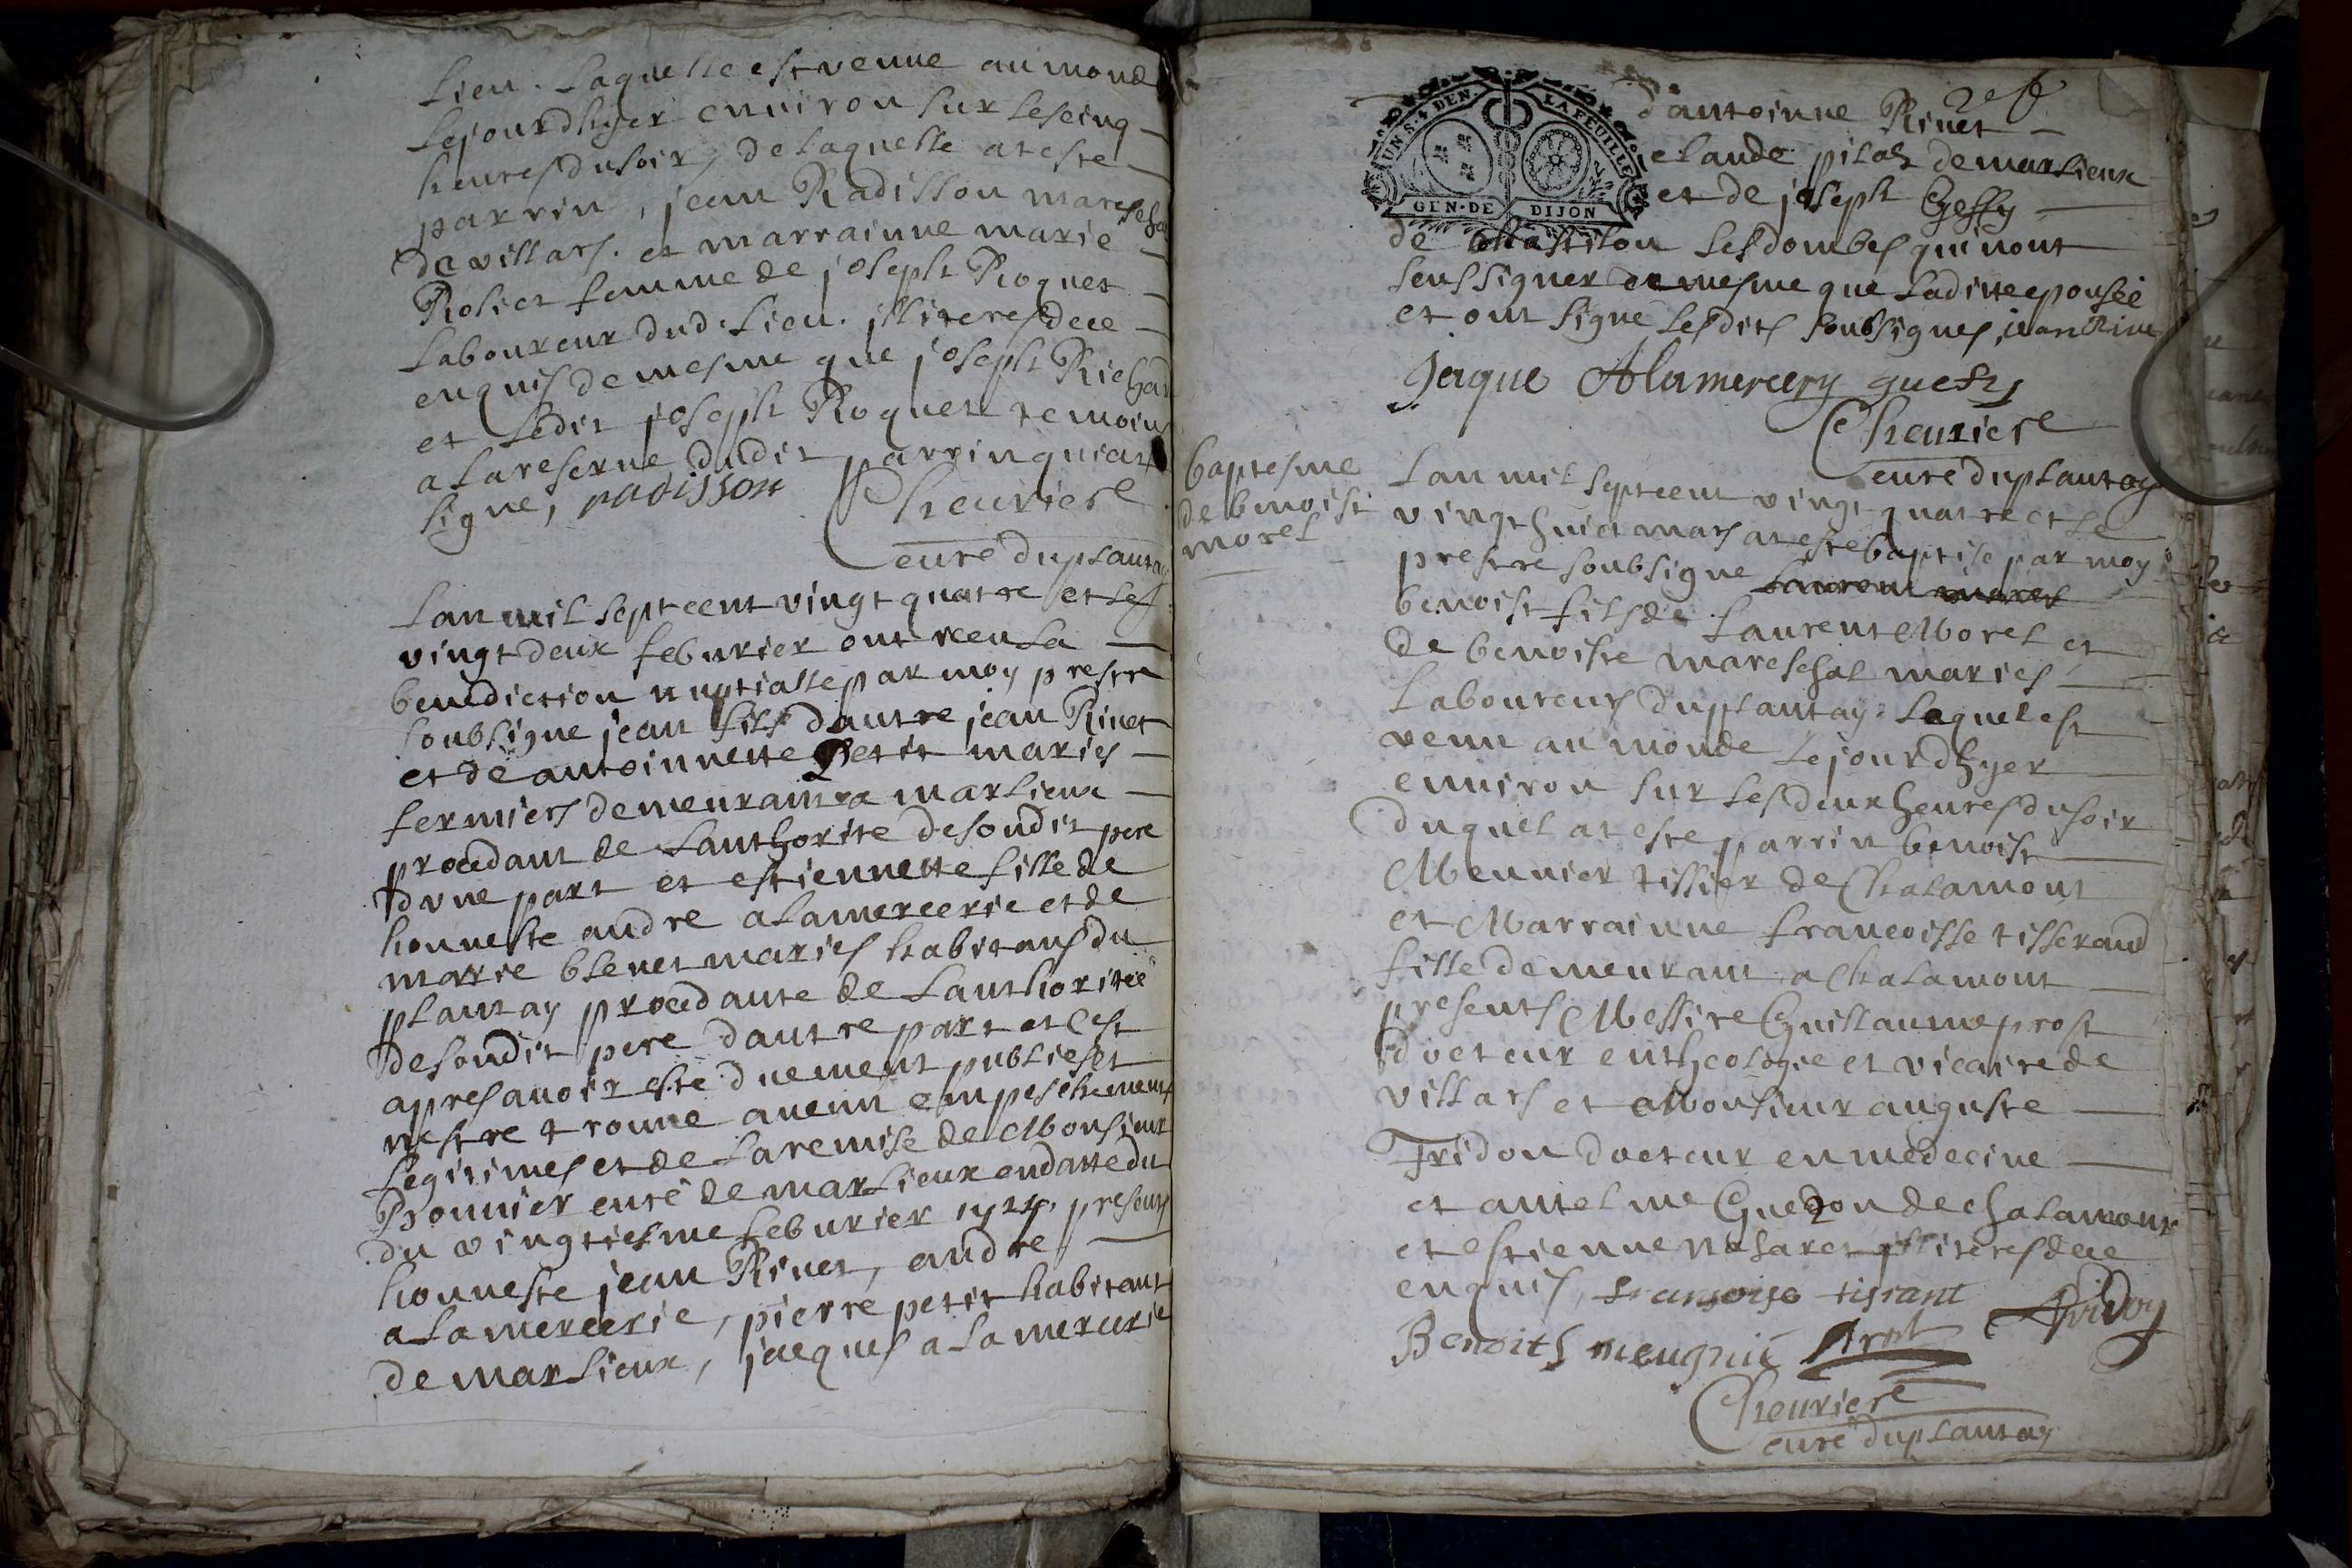 Lieu. Laquelle est venue au monde
le jour dhyer environ sur les cinq
heures du soir, de laquelle at este
parrin, jean Radisson mareschal
de villars. et marrainne marie
Rolier femme de joseph Roquet
laboureur dud. Lieu. illiteres de ce
enquis de mesme que joseph Richard
et Ledit joseph Roquet temoins
a la reserve dudit parrin qui at
signe, radisson
Cheuriere
cure du plantay
Lan mil sept cent vingt quatre et les
vingt deux feburier ont receu la
benediction nuptialle par moy prestre
soubsigne jean fils dautre jean Rivet
et de antoinnette Petit maries
fermiers demeurants a marlieux
procedant de Lauthorite de sondit pere
dvne part et estiennette fille de
honneste andre alamercerie et de
marie blenet maries habitans du
plantay procedante de Lauthoritee
de sondit pere dautre part et cest
apres auoir este duement publies et
nestre trouue aucun empeschement
legitimes et de la remise de Monsieur
Pronnier curé de marlieux en datte du
du vingtiesme feburier 1724. presents
honneste jean Rivet, andre
alamercerie, pierre petit habitant
de marlieux, jacques alamercerie
UN S. 4 DEN. LA FEUILLE
GEN. DE DIJON
dantoinne Rivet
claude pilaz de marlieux
et de joseph Gessy
de Chastilon les dombes qui nont
seus signer de mesme que laditte epousée
et ont signé lesdits soubsignes, jean Rivet
jaque Alamercery guesty
Cheuriere
cure du plantay
baptesme
de benoist
morel
Lan mil sept cent vingt quatre et le
vingt huict mars at este baptise par moy
prestre soubsigne Laurent morel
benoist fils de Laurent Morel et
de benoiste mareschal maries
Laboureurs du plantay. Lequel est
venu au monde le jour dhyer
environ sur les deux heures du soir
duquel at este parrin benoist
Meunier tissier de Chalamont
et Marrainne francoisse tisserand
fille demeurant a Chalamont
presents Messire Guillaume prost
docteur en theologie et vicaire de
villars et Monsieur auguste
Tridon docteur en medecine
et antelme Guedon de chalamont
et estienne nasaret illiteres de ce
enquis, francoise tisrant Tridon
Benoith meugnié Prost
Cheuriere
cure du plantay